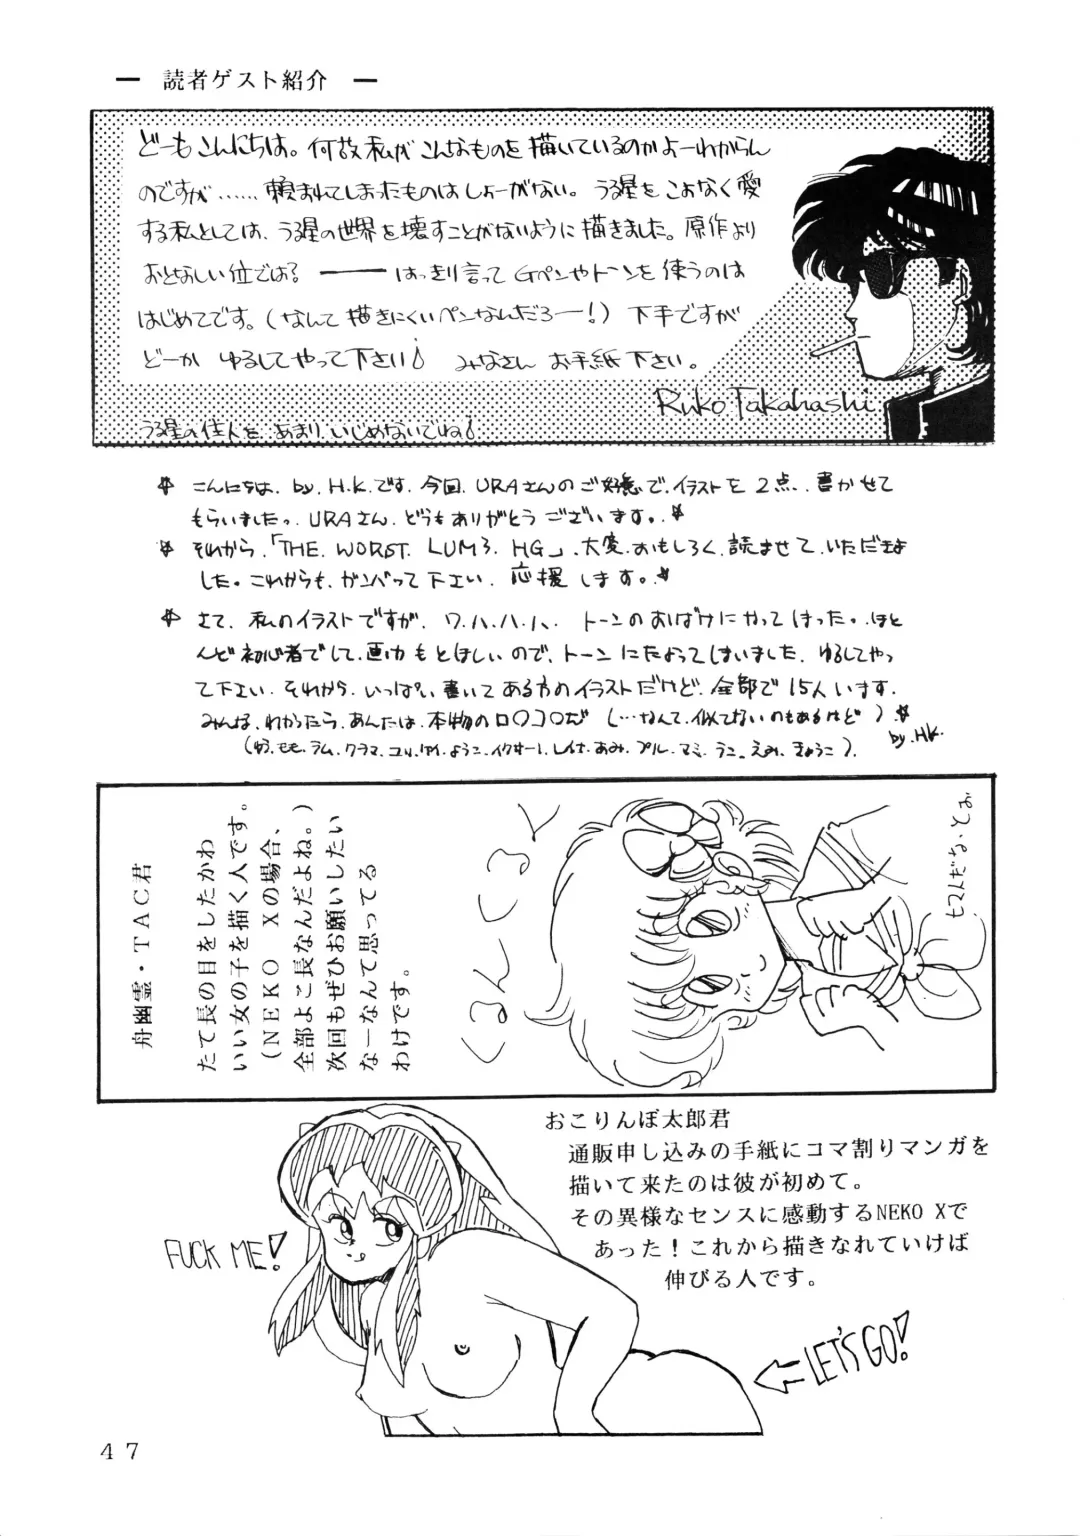 ― 読者ゲスト紹介 ―
どーもこんにちは。何故私がこんなものを描いているのかよーわからん
のですが……頼まれてしまったものはしょーがない。うる星をこよなく愛
する私としては、うる星の世界を壊すことがないように描きました。原作より
おとなしい位では？――はっきり言ってGペンやトーンを使うのは
はじめてです。(なんて描きにくいペンなんだろー！) 下手ですが
どーか ゆるしてやって下さい♪ みなさん お手紙下さい。
Ruko Takahashi
うる星の住人を あまり いじめないでね♪
☆ こんにちは、by.H.K.です。今回、URAさんのご好意で、イラストを2点、書かせて
もらいましたっ。URAさん、どうもありがとうございます。☆
☆ それから、「THE WORST LUM3. HG」、大変おもしろく、読ませて、いただきま
した。これからも、ガンバって下さい、応援します。☆
☆ さて、私のイラストですが、ワ、ハ、ハ、ハ、トーンのおばけになってしまった。ほと
んど初心者でして、画力もとぼしいので、トーンにたよってしまいました、ゆるしてやっ
て下さい。それから、いっぱい書いてある方のイラストだけど、全部で15人います。
みんな、わかったら、あんたは、本物のロ〇コ〇だ (…なんて、似てないのもあるけど)☆
by.H.K.
舟幽霊・TAC君
たて長の目をしたかわ
いい女の子を描く人です。
(NEKO Xの場合、
全部よこ長なんだよね。)
次回もぜひお願いしたい
なーなんて思ってる
わけです。
くぉんくぉん
ヒマんだな、とぉ
おこりんぼ太郎君
通販申し込みの手紙にコマ割りマンガを
描いて来たのは彼が初めて。
その異様なセンスに感動するNEKO Xで
あった！これから描きなれていけば
伸びる人です。
FUCK ME!
LET'S GO!
47